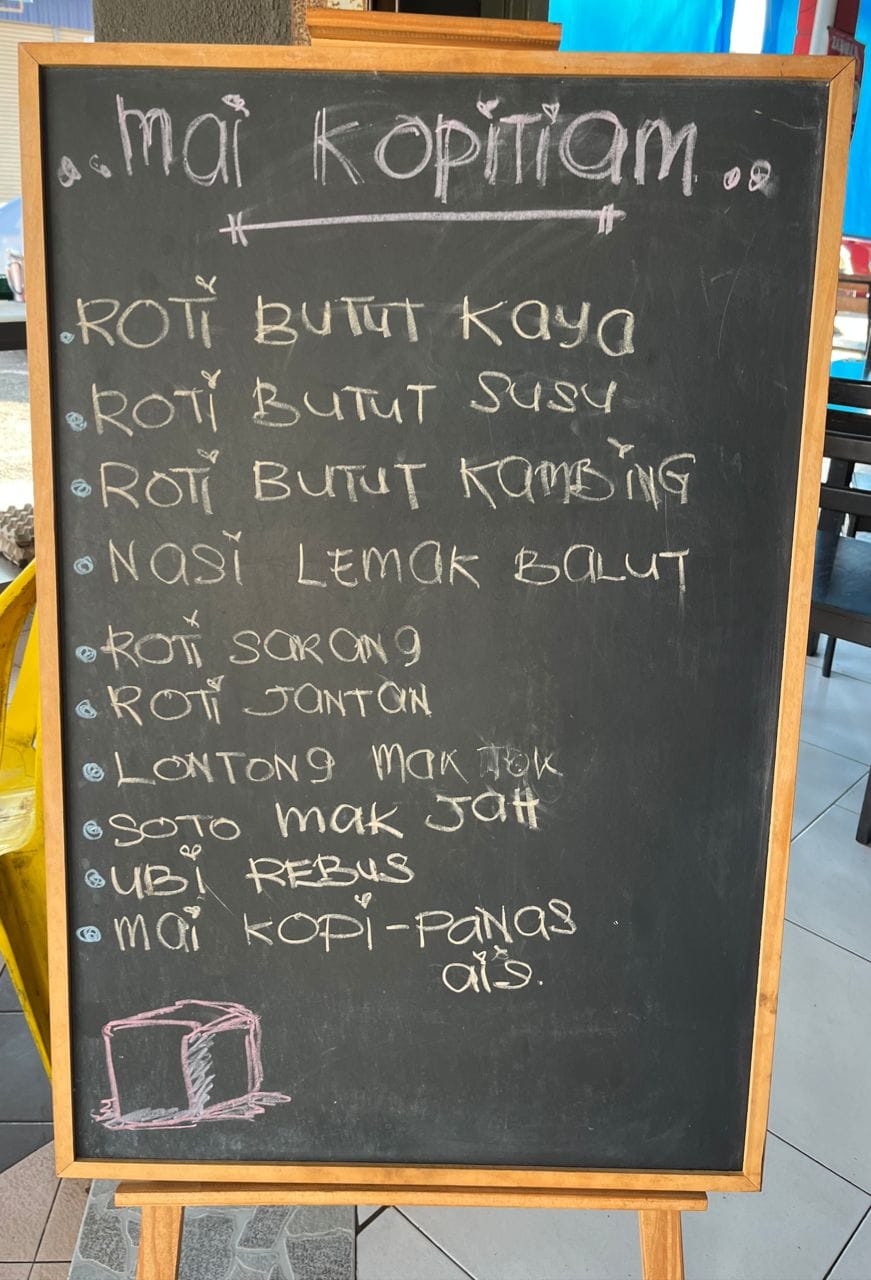 ..mai KOPiTiam..
ROTi BUTUT Kaya
ROTi BUTUT SUSU
ROTi BUTUT KAMBiNG
NaSi LEMaK BaLUT
ROTi SaRaNg
ROTi JaNTaN
LONTONg maK TOK
SOTO maK JaH
UBi REBUS
mai KOPi-PaNaS
aiS.